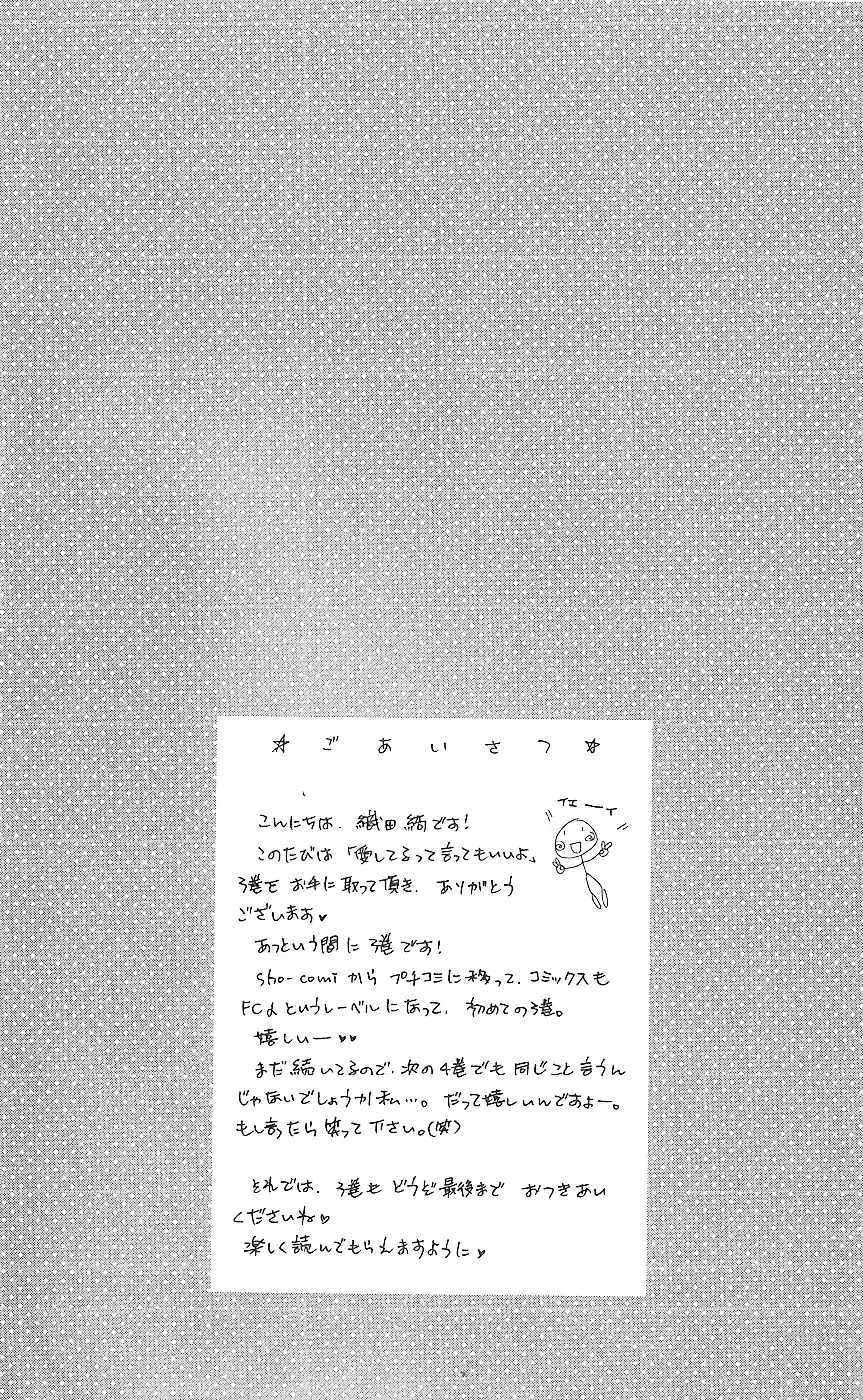 ☆ ごあいさつ ☆
イェーイ
こんにちは、織田綺です!
このたびは「愛してるって言ってもいいよ」
3巻を お手に取って頂き、ありがとう
ございます♥
あっという間に 3巻です!
Sho-comiから プチコミに移って、コミックスも
FCαというレーベルになって、初めての3巻。
嬉しいー♥♥
まだ続いてるので、次の4巻でも 同じこと言うん
じゃないでしょうか私…。だって嬉しいんですよー。
もし言ったら笑って下さい。(笑)
それでは、3巻も どうぞ最後まで おつきあい
くださいね♥
楽しく読んでもらえますように♥